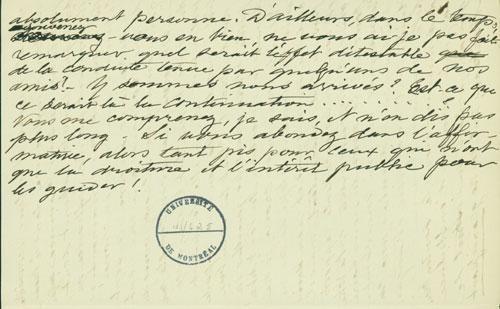 absolument personne. D'ailleurs, dans le temps,
souvenez-vous en bien, ne vous ai je pas fait
remarquer quel serait l'effet détestable
de la conduite tenue par quelqu'uns de nos
amis! - Y sommes nous arrivés? Est-ce que
ce serait là la continuation . . . . . . . . ?
Vous me comprenez, je sais, et n'en dis pas
plus long. - Si vous abondez dans l'affir
mative, alors tant pis pour ceux qui n'ont
que la droiture et l'intérêt public pour
les guider!
UNIVERSITÉ
DE MONTRÉAL